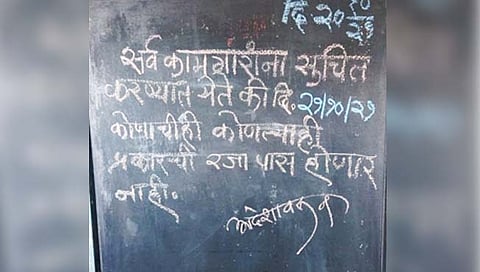 दि २० १०
२१
सर्व कामगारांना सुचित
करण्यात येते की दि. २१/१०/२१
कोणाचीही कोणत्याही
प्रकारची रजा पास होणार
नाही.
आदेशावरून